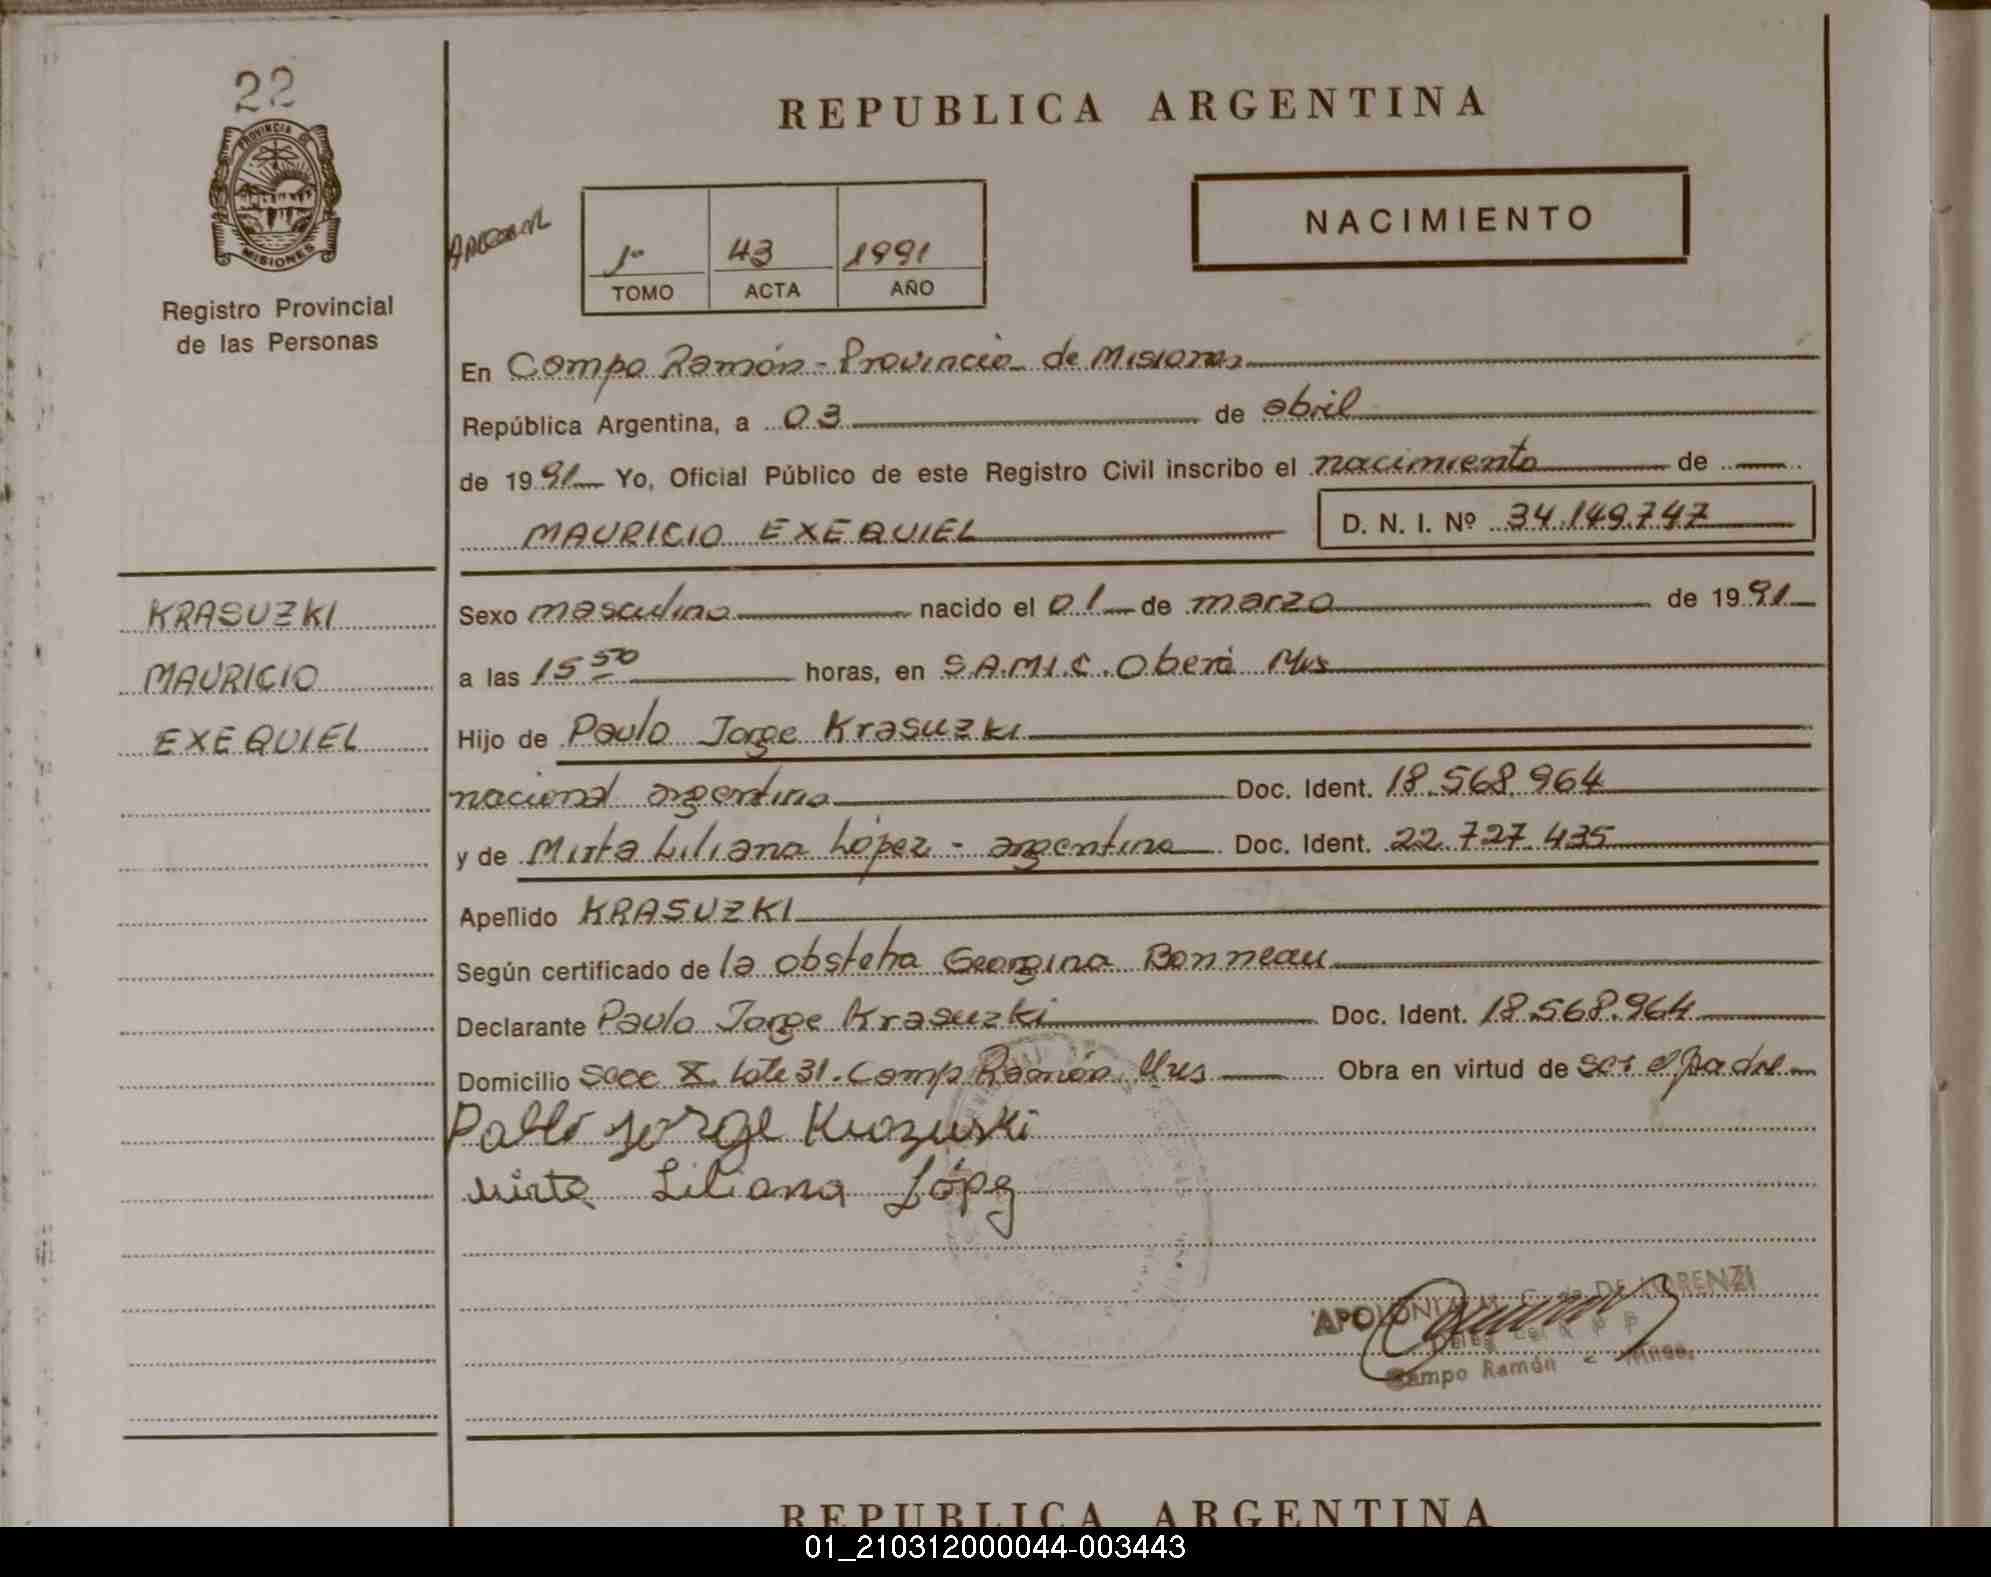 22
PROVINCIA DE
MISIONES
Registro Provincial
de las Personas
REPUBLICA ARGENTINA
NACIMIENTO
1º 43 1991
TOMO ACTA AÑO
En Campo Ramón - Provincia de Misiones
República Argentina, a 03 de abril
de 1991 Yo, Oficial Público de este Registro Civil inscribo el nacimiento de
MAURICIO EXEQUIEL D. N. I. Nº 34.149.747
KRASUZKI
MAURICIO
EXEQUIEL
Sexo masculino nacido el 01 de marzo de 1991
a las 15 50 horas, en S.A.M.I.C. Oberá Mns
Hijo de Paulo Jorge Krasuzki
nacional argentino Doc. Ident. 18.568.964
y de Mirta Liliana López - argentina Doc. Ident. 22.727.435
Apellido KRASUZKI
Según certificado de la obstetra Georgina Bonneau
Declarante Paulo Jorge Krasuzki Doc. Ident. 18.568.964
Domicilio Secc X Lote 31. Camp Ramón Mns Obra en virtud de ser el padre
Jorge
Mirta Liliana López
DE LORENZI
Campo Ramón
REPUBLICA ARGENTINA
01_210312000044-003443